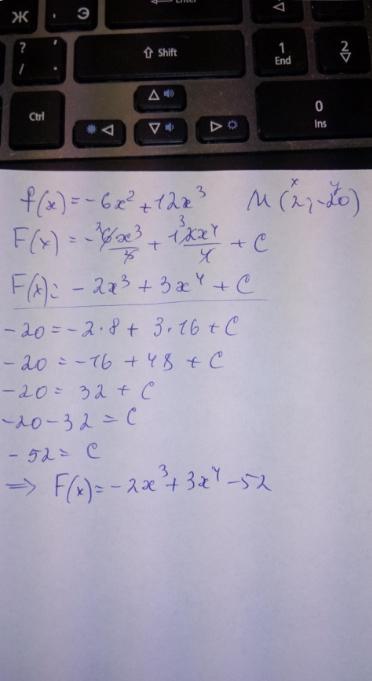 Ж Э
? / . Shift 1 End 2
Ctrl 0 Ins
f(x) = -6x² + 12x³ M(2; -20)
x y
F(x) = -6x³/3 + 12x⁴/4 + C
F(x) = -2x³ + 3x⁴ + C
-20 = -2·8 + 3·16 + C
-20 = -16 + 48 + C
-20 = 32 + C
-20-32 = C
-52 = C
⇒ F(x) = -2x³ + 3x⁴ - 52